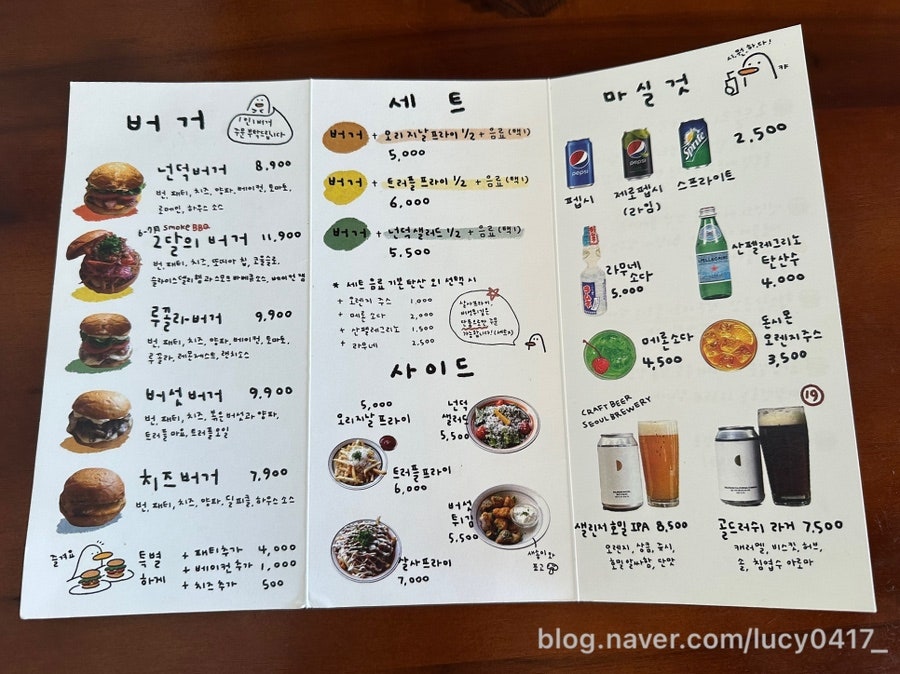 버거
1인 1버거
주문 부탁드립니다
넌덕버거 8,900
번, 패티, 치즈, 양파, 베이컨, 토마토,
로메인, 하우스 소스
6-7月 smoke BBQ
2달의 버거 11,900
번, 패티, 치즈, 또띠아 칩, 코울슬로,
루꼴라버거 9,900
번, 패티, 치즈, 양파, 베이컨, 토마토,
루꼴라, 레몬제스트, 랜치소스
버섯버거 9,900
번, 패티, 치즈, 볶은 버섯과 양파,
트러플 마요, 트러플 오일
치즈버거 7,900
번, 패티, 치즈, 양파, 딜피클, 하우스 소스
즐겨요
특별
하게
+ 패티추가 4,000
+ 베이컨 추가 1,000
+ 치즈 추가 500
세트
버거 + 오리지날 프라이 1/2 + 음료 (택1)
5,000
버거 + 트러플 프라이 1/2 + 음료 (택1)
6,000
버거 + 넌덕샐러드 1/2 + 음료 (택1)
5,500
* 세트 음료 기본 탄산 외 선택 시
+ 오렌지 주스 1,000
+ 메론 소다 2,000
+ 산펠레그리노 1,500
+ 라무네 2,500
살사프라이,
버섯튀김은
단품으로만 주문
가능합니다! (세트x)
사이드
5,000
오리지날 프라이
넌덕
샐러드
5,500
트러플 프라이
6,000
버섯
튀김
5,500
새송이와
표고
살사프라이
7,000
마실것
시.원.하.다!
캬
2,500
펩시
제로펩시
(라임)
스프라이트
pepsi
pepsi
Sprite
라무네
소다
5,000
산펠레그리노
탄산수
4,000
S.PELLEGRINO
메론소다
4,500
돈시몬
오렌지주스
3,500
CRAFT BEER
SEOUL BREWERY
19
샐린저 호밀 IPA 8,500
오렌지, 상큼, 쥬시,
호밀 알싸함, 단맛
골드러쉬 라거 7,500
캐러멜, 비스킷, 허브,
솔, 침엽수 아로마
blog.naver.com/lucy0417_